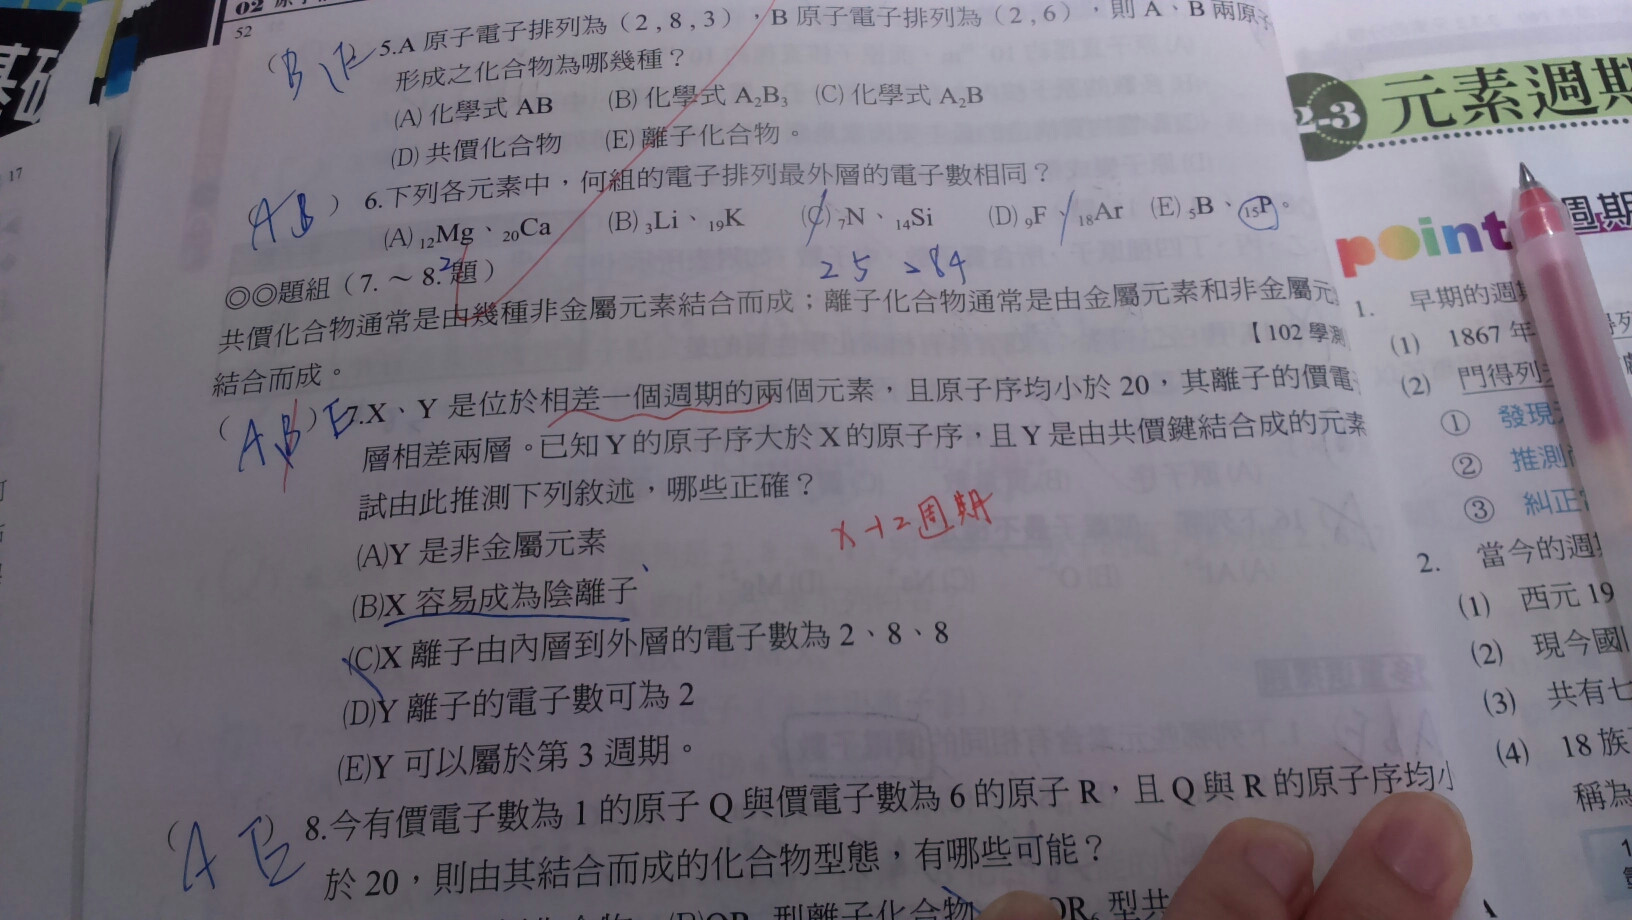 02
52
基礎
17
(B、E) 5.A 原子電子排列為（2 , 8 , 3），B 原子電子排列為（2 , 6），則 A、B 兩原子
形成之化合物為哪幾種？
(A) 化學式 AB (B) 化學式 A₂B₃ (C) 化學式 A₂B
(D) 共價化合物 (E) 離子化合物。
(AB) 6.下列各元素中，何組的電子排列最外層的電子數相同？
(A) ₁₂Mg、₂₀Ca (B) ₃Li、₁₉K (C) ₇N、₁₄Si (D) ₉F、₁₈Ar (E) ₅B、₁₅P。
2
2 5 284
◎◎題組（7. ～ 8. 題）
共價化合物通常是由幾種非金屬元素結合而成；離子化合物通常是由金屬元素和非金屬元
結合而成。 【102 學測
(AB) E 7.X、Y 是位於相差一個週期的兩個元素，且原子序均小於 20，其離子的價電
層相差兩層。已知 Y 的原子序大於 X 的原子序，且 Y 是由共價鍵結合成的元素
試由此推測下列敘述，哪些正確？
X→2周期
(A)Y 是非金屬元素
(B)X 容易成為陰離子
(C)X 離子由內層到外層的電子數為 2、8、8
(D)Y 離子的電子數可為 2
(E)Y 可以屬於第 3 週期。
(A E) 8.今有價電子數為 1 的原子 Q 與價電子數為 6 的原子 R，且 Q 與 R 的原子序均小
於 20，則由其結合而成的化合物型態，有哪些可能？
型離子化合物 型共
2-3 元素週期
point 週期
1. 早期的週
(1) 1867 年
(2) 門得列
① 發現
② 推測
③ 糾正
2. 當今的週
(1) 西元 19
(2) 現今國
(3) 共有七
(4) 18 族
稱為